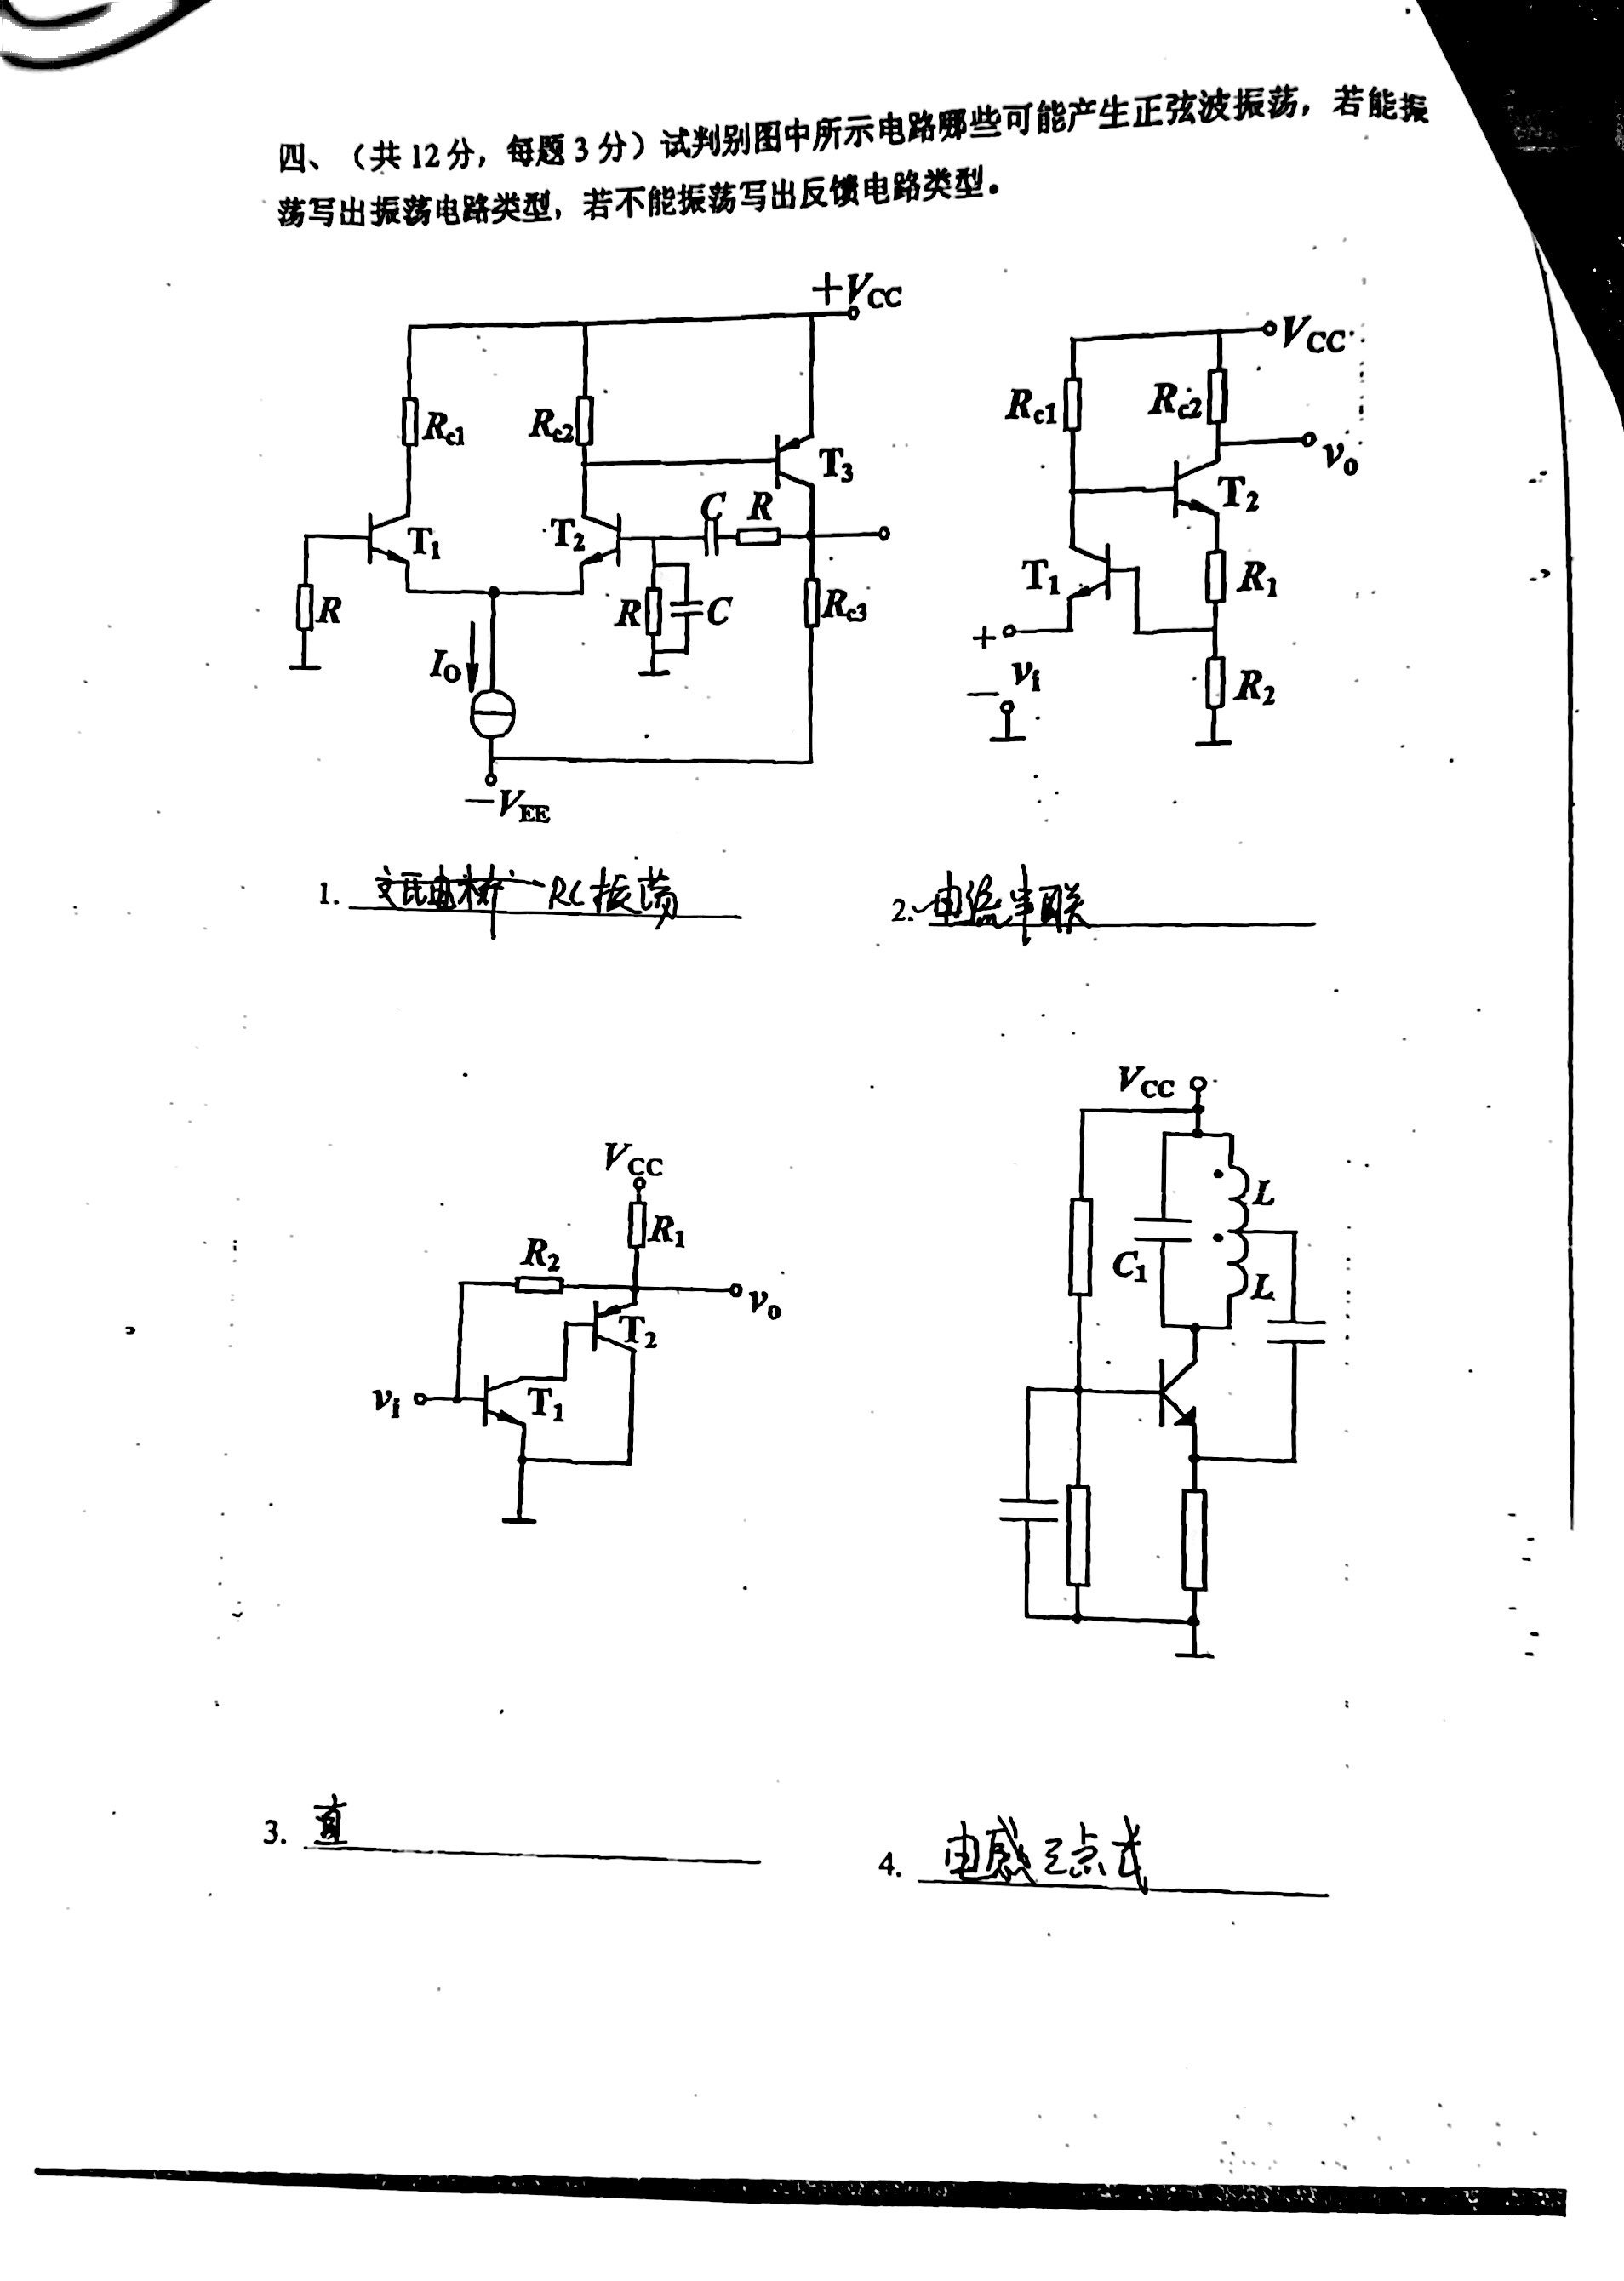 四、（共 12 分，每题 3 分）试判别图中所示电路哪些可能产生正弦波振荡，若能振
荡写出振荡电路类型，若不能振荡写出反馈电路类型。
+VCC
Rc1
Rc2
T3
C R
T1
T2
R
R
C
Rc3
IO
−VEE
VCC
Rc1
Rc2
vo
T2
T1
R1
+
vi
−
R2
1. 文氏电桥 RC振荡
2. 电流串联
VCC
R1
R2
vo
T2
vi
T1
VCC
L
C1
L
3.
4. 电感三点式